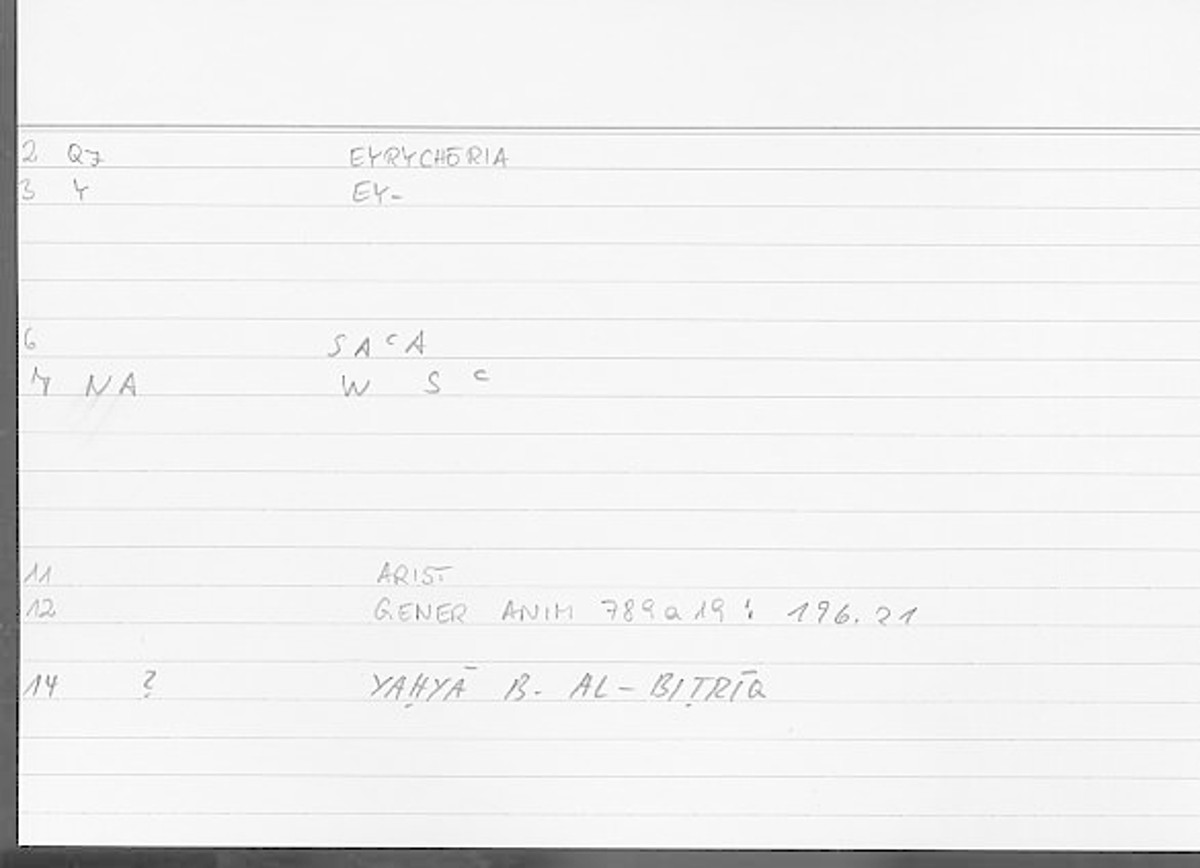 2 QJ EYRYCHŌRIA
3 Y EY-
6 SAᶜA
7 NA W S ᶜ
11 ARIST
12 GENER ANIM 789a19: 196.21
14 ? YAḤYĀ B. AL-BIṬRĪQ